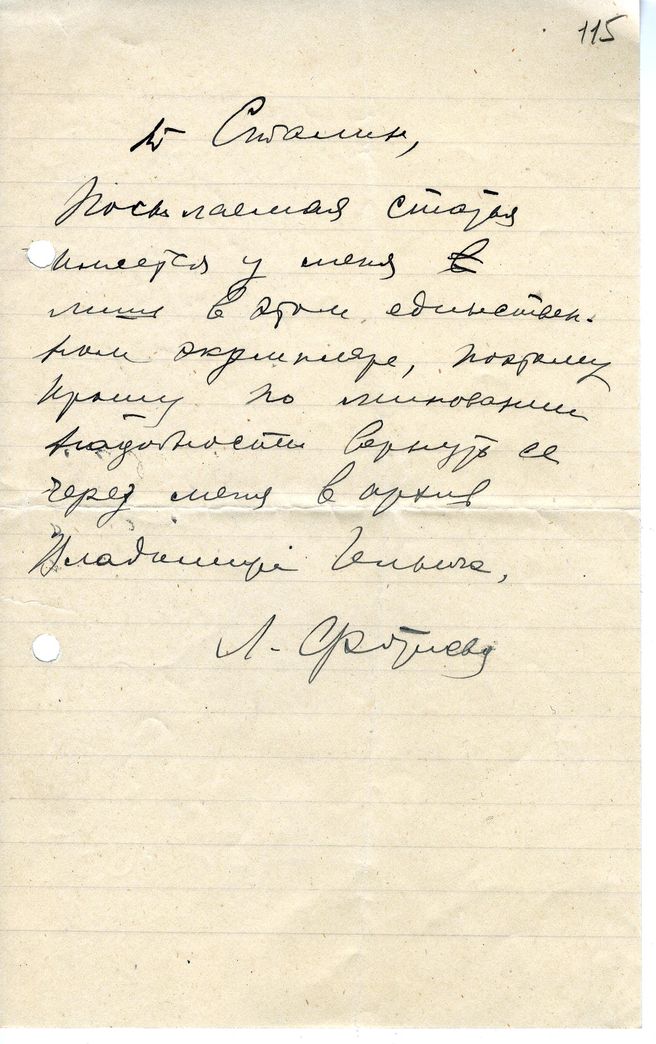 115
т Сталин,
Посылаемая статья
имеется у меня в
лишь в этом единствен-
ном экземпляре, поэтому
прошу по миновании
надобности вернуть ее
через меня в архив
Владимира Ильича.
Л. Фотиева